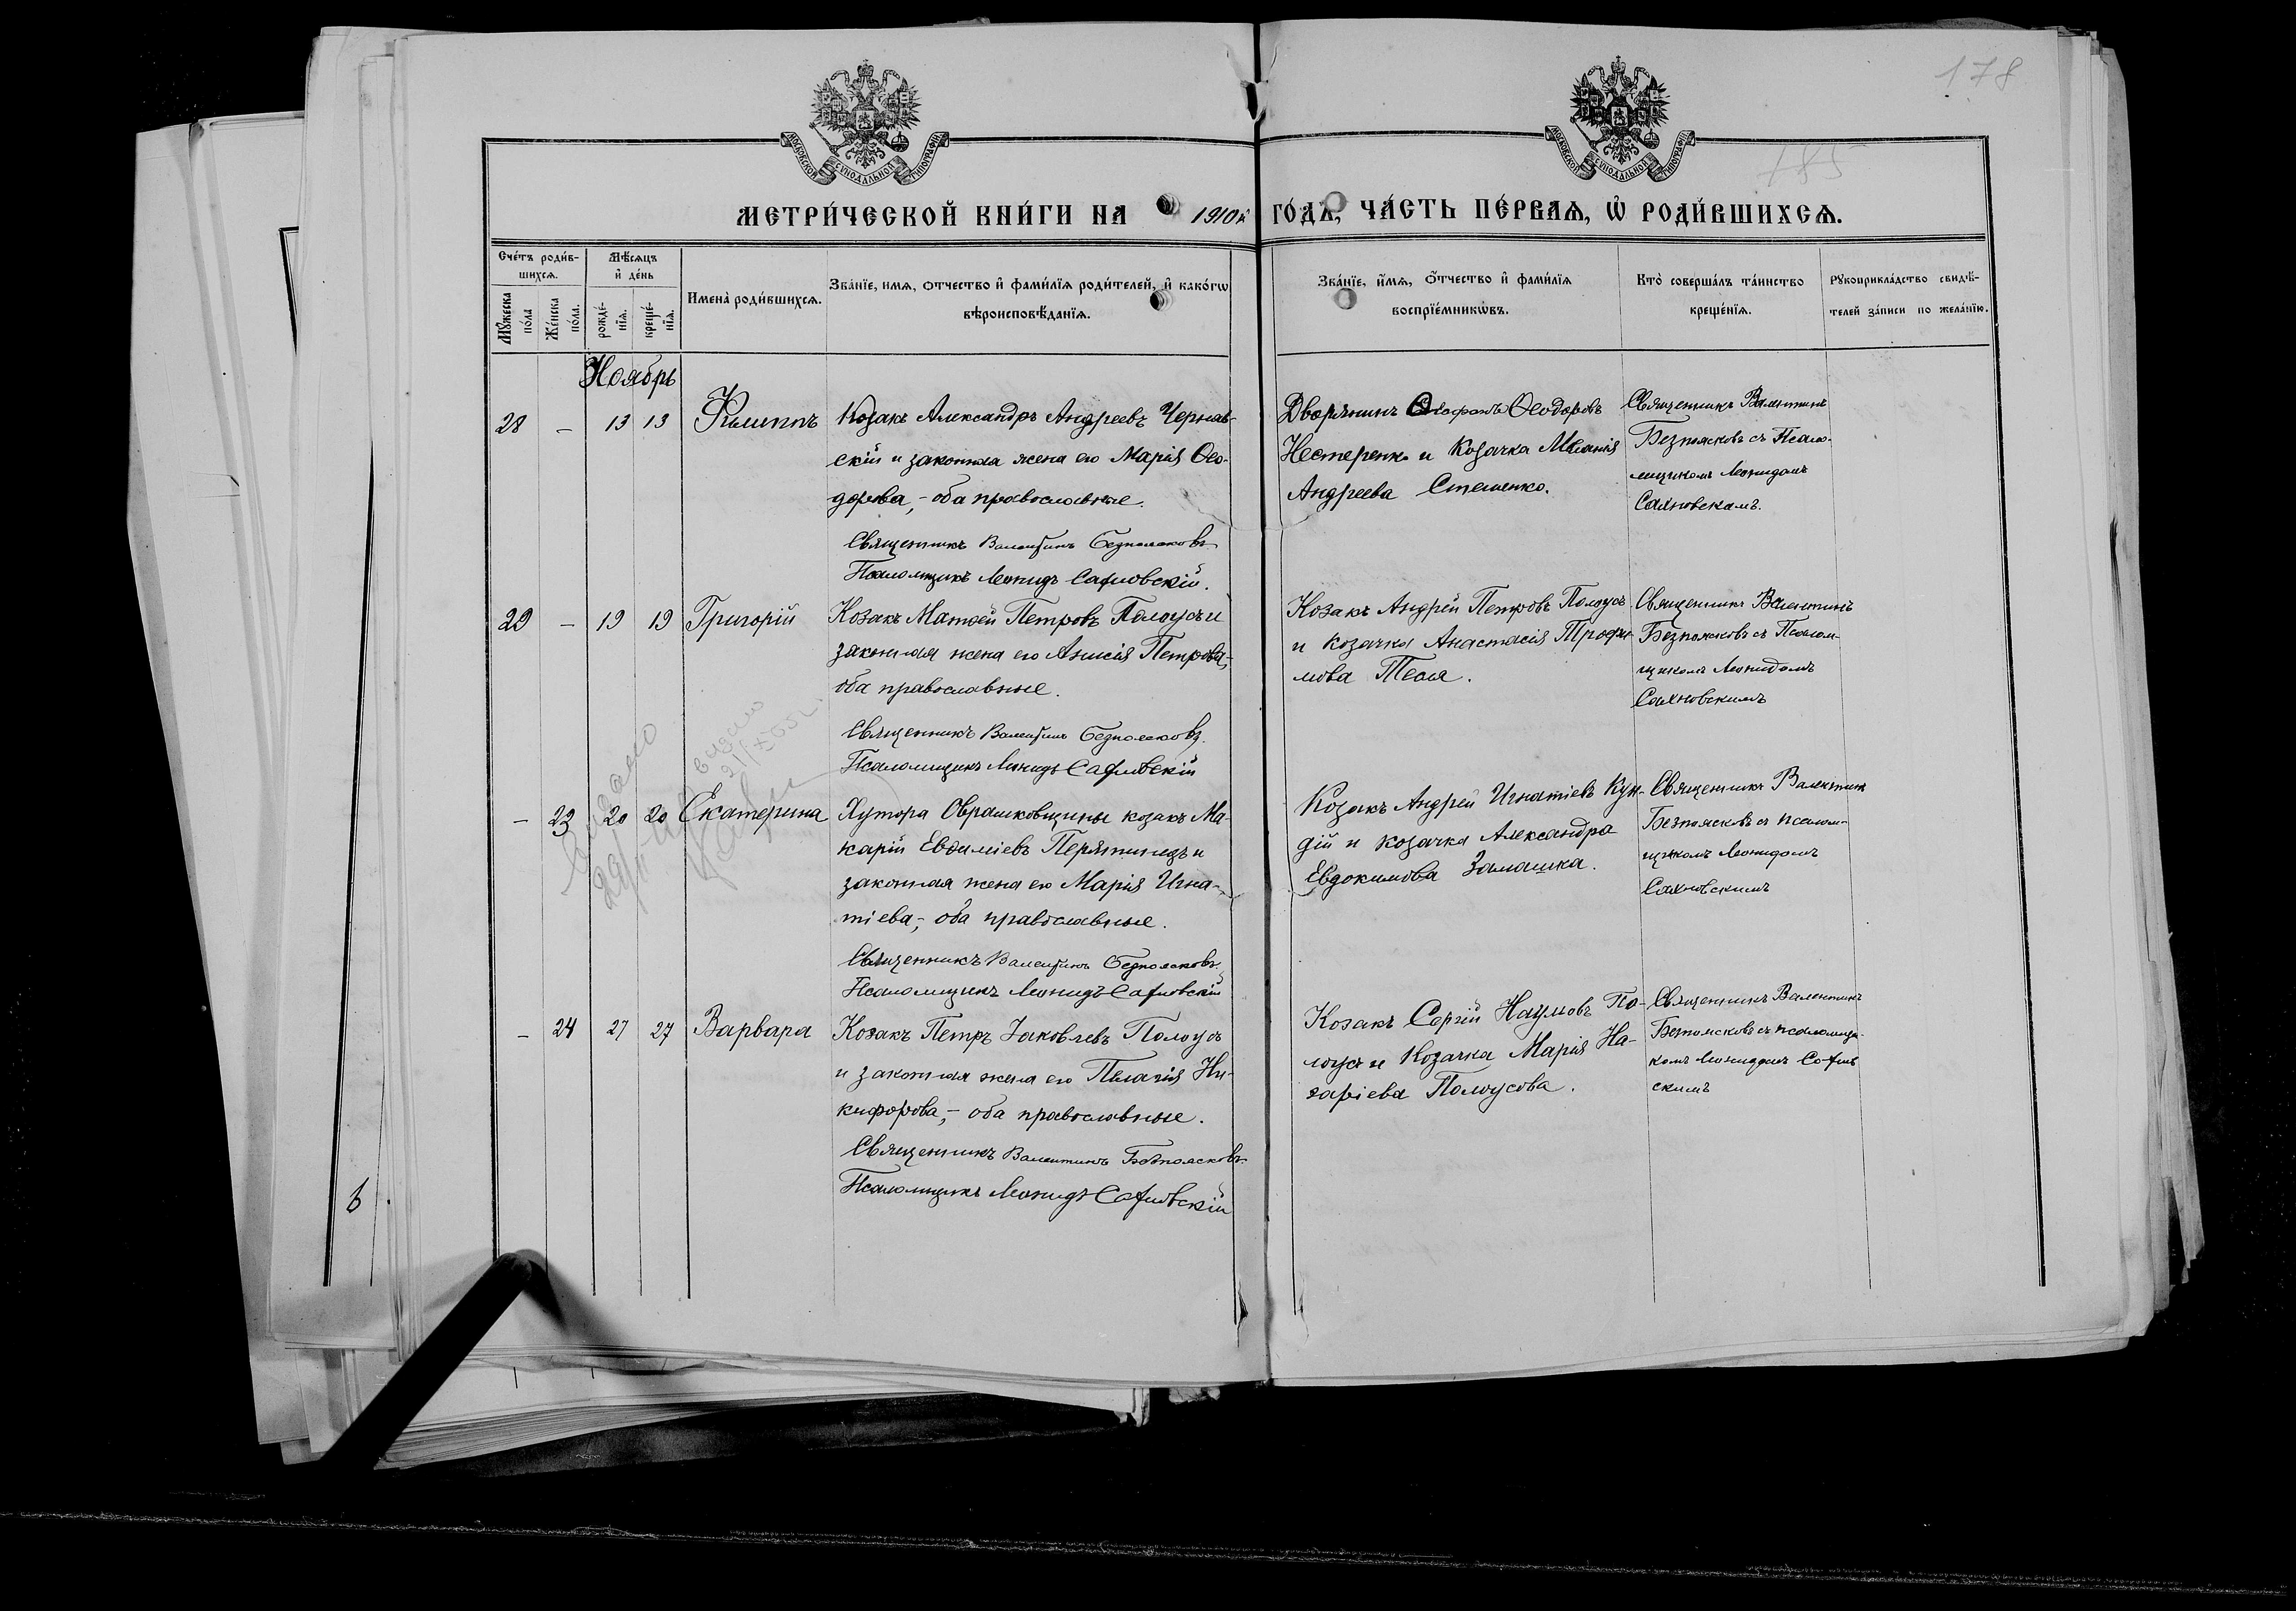 178
185
МОСКОВСКОЙ СѴНОДАЛЬНОЙ ТИПОГРАФІИ
МОСКОВСКОЙ СѴНОДАЛЬНОЙ ТИПОГРАФІИ
МЕТРИ́ЧЕСКОЙ КНИ́ГИ НА 1910й ГО́ДЪ, ЧА́СТЬ ПЕ́РВАЯ, Ѽ РОДИ́ВШИХСѦ.
Сче́тъ роди́в-
шихсѧ.
Мꙋжеска по́ла
Же́нска по́ла.
Мѣ́сѧцъ
и҆ де́нь
рожде́-
нїѧ.
креще́-
нїѧ.
Имена̀ роди́вшихсѧ.
Зва́нїе, имѧ, отчество и҆ фами́лїѧ роди́телей, и҆ како́гѡ
вѣроисповѣ́данїѧ.
Зва́нїе, и҆́мѧ, о҆́тчество и҆ фами́лїѧ
воспрїе́мникѡвъ.
Кто̀ соверша́лъ та́инство
креще́нїѧ.
Рꙋкоприкла́дство свидѣ́-
телей за́писи по жела́нїю.
Ноябрь
28 - 13 13 Филиппъ
Козакъ Александръ Андреевъ Чернав-
скій и законная жена его Марія Ѳео-
дорова, - оба православные.
Священникъ Валентинъ Безпоясковъ
Псаломщикъ Леонидъ Сахновскій.
Дворянинъ Ѳеодоровъ
Нестеренко и Козачка Меланія
Андреева Стешенко.
Священникъ Валентинъ
Безпоясковъ съ Псало-
мщикомъ Леонидомъ
Сахновскимъ.
29 - 19 19 Григорій
Козакъ Матѳей Петровъ Полоусъ и
законная жена его Анисія Петрова,-
оба православные.
Священникъ Валентинъ Безпоясковъ
Псаломщикъ Леонидъ Сахновскій
Козакъ Андрей Петровъ Полоусъ
и козачка Анастасія Трофи-
мова Тесля.
Священникъ Валентинъ
Безпоясковъ съ Псалом-
щикомъ Леонидомъ
Сахновскимъ
- 23 20 20 Екатерина
Хутора Оврамковщины козакъ Ма-
карій Евѳиміевъ Перятинецъ и
законная жена его Марія Игна-
тіева,- оба православные.
Священникъ Валентинъ Безпоясковъ
Псаломщикъ Леонидъ Сахновскій
Козакъ Андрей Игнатіевъ Кун-
дій и козачка Александра
Евдокимова Заматка.
Священникъ Валентинъ
Безпоясковъ съ псалом-
щикомъ Леонидомъ
Сахновскимъ
- 24 27 27 Варвара
Козакъ Петръ Іаковлевъ Полоусъ
и законная жена его Пелагія Ни-
кифорова,- оба православные.
Священникъ Валентинъ Безпоясковъ
Псаломщикъ Леонидъ Сахновскій
Козакъ Сергій Наумовъ По-
лоусъ и Козачка Марія На-
заріева Полоусова.
Священникъ Валентинъ
Безпоясковъ съ псаломщи-
комъ Леонидомъ Сахнов
скимъ